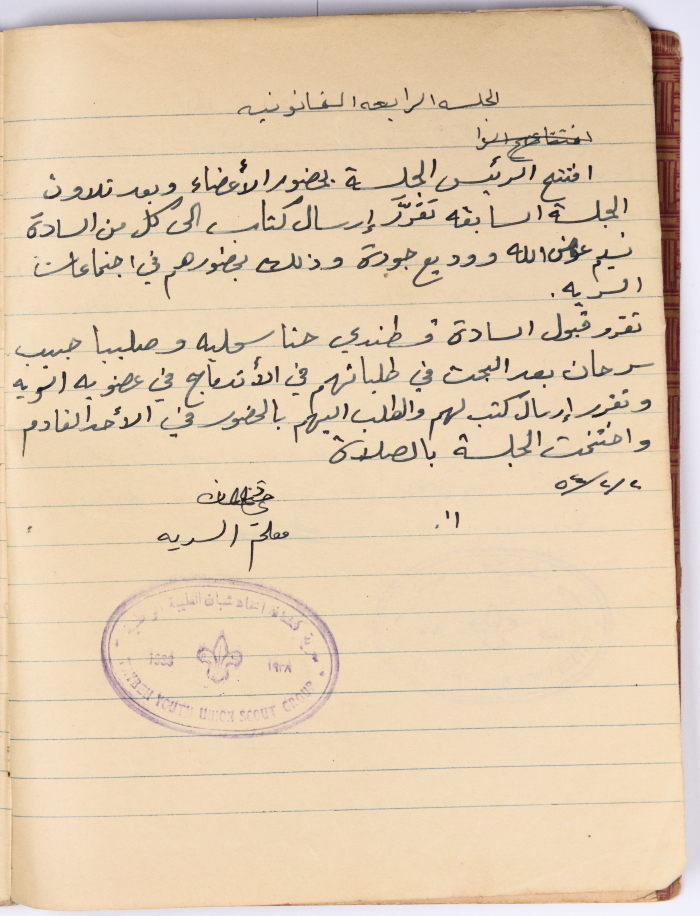 الجلسه الرابعه القانونيه
افتتح الرئيس الجلسة بحضور الأعضاء وبعد تلاوة
الجلسة السابقه تَقَرَّرَ إرسال كتاب الى كل من السادة
نسيم عوض الله ووديع جودة وذلك بحضورهم في اجتماعات
السريه.
تقرر قبول السادة قسطندي حنا سمليه وصليبا حبيب
سرحان بعد البحث في طلباتهم في الأندماج في عضويه السريه
وتقرر إرسال كتب لهم والطلب اليهم بالحضور في الأحد القادم
واختتمت الجلسة بالصلاة
٥٤/٢/٢
معلم السريه
سرية كشافة اتحاد شبان الطيبة
1938 ١٩٣٨
TAYBEH YOUTH UNION SCOUT GROUP